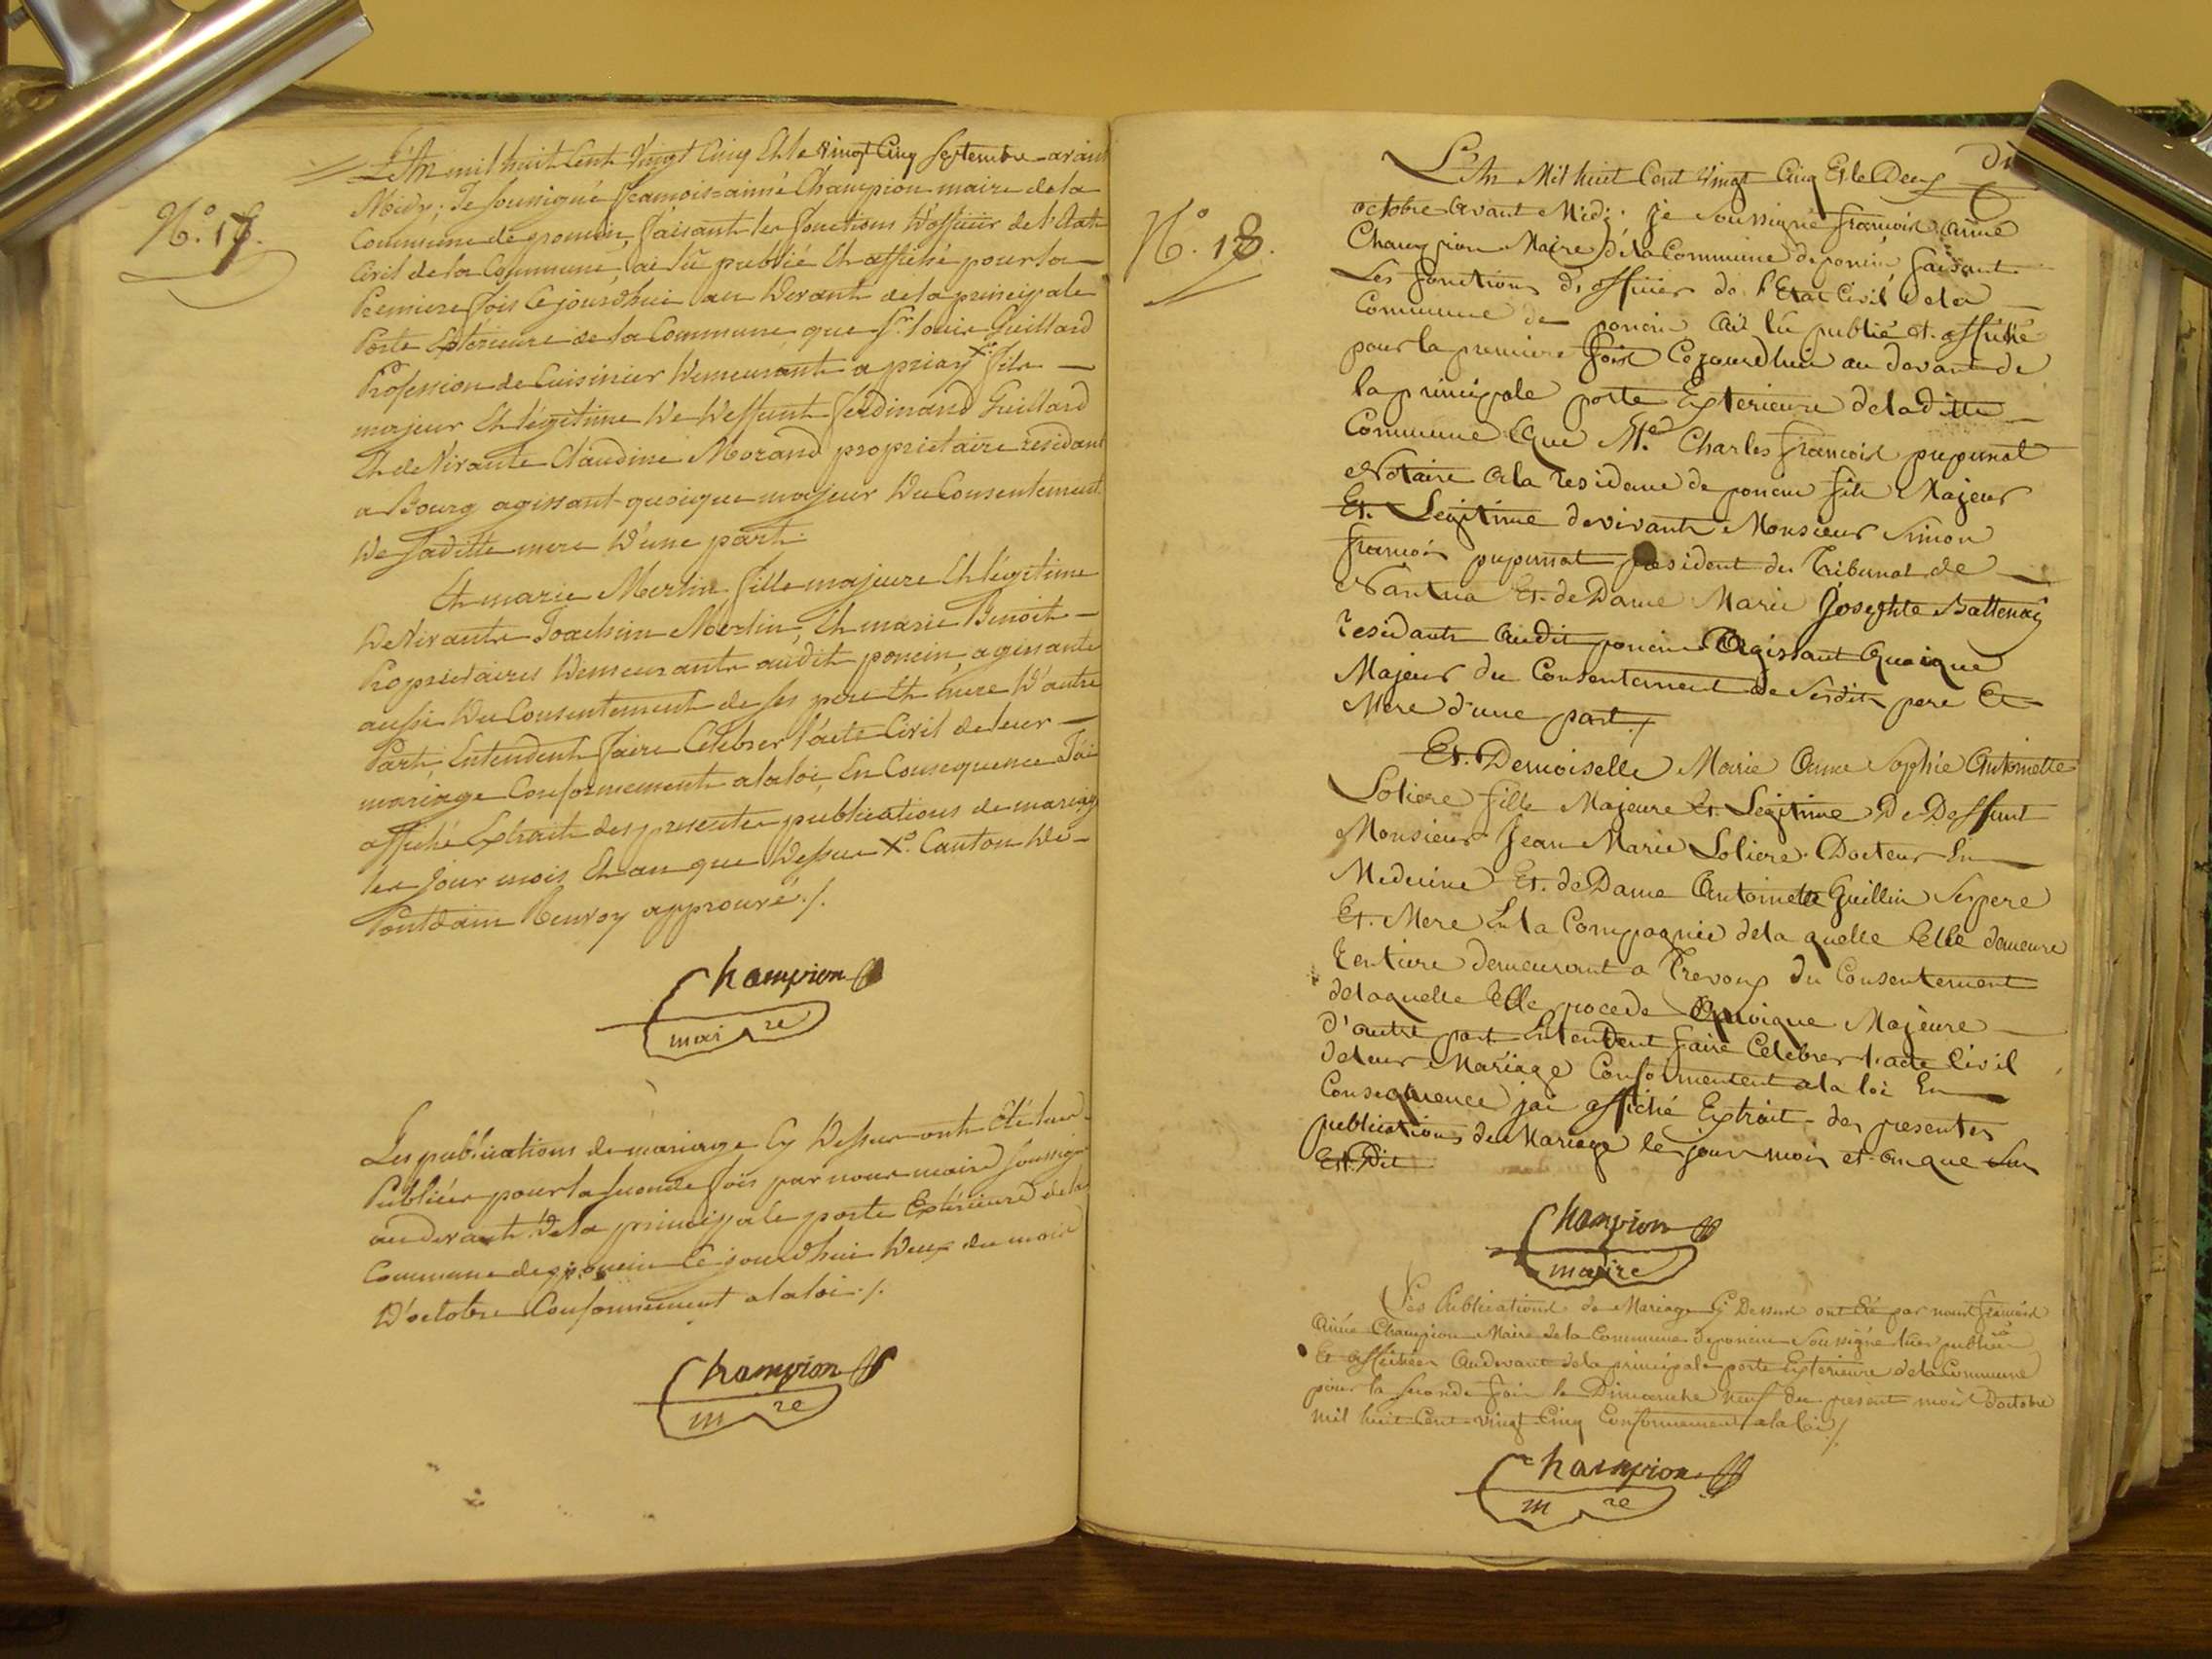 N.° 17.
L'An mil huit Cent Vingt Cinq Et le vingt Cinq Septembre avant
Midy; Je soussigné francois aimé Champion maire de la
Commune de poncin, faisant les fonctions d'officier de l'Etat
Civil de la Commune, ai lû publié Et affiché pour la
Premiere fois Cejourdhui au devant de la principale
Porte Exterieure de la Commune, que Sr. louis Guillard
Profession de Cuisinier demeurant a priay X° fils
majeur Et légitime de deffunt ferdinand Guillard
Et de vivante Claudine Morand propriétaire résidant
a Bourg agissant quoique majeur du Consentement
de saditte mere d'une part.
Et marie Merlin fille majeure Et légitime
de vivants Joachim Merlin, Et marie Benoit
Propriétaires demeurants audit poncin, agissante
aussi du Consentement de ses pere Et mere d'autre
Part, Entendent faire Célébrer l'acte Civil de leur
mariage Conformement a la loi, En Consequence J'ai
affiché Extrait des presentes publications de mariage
les jour mois Et an que dessus X°. Canton de
Pontdain Renvoy approuvé ./.
Champion
maire
Les publications de mariage Cy dessus ont été lues
Publiées pour la seconde fois par nous maire soussigné
au devant de la principale porte Extérieure de la
Commune de poncin Cejourdhui deux du mois
D'octobre Conformement a la loi ./.
Champion
m re
N.° 18.
L'An Mil huit Cent Vingt Cinq Et le Deux Du
octobre avant Midi. Je Soussigné francois aimé
Champion Maire de la Commune de poncin, faisant
Les fonctions d'officier de l'Etat Civil de la
Commune de poncin ai lû publié et affiché
pour la premiere fois Cejourdhui au devant de
la principale porte Exterieure de la ditte
Commune que Me. Charles francois pupunat
Notaire a la residence de poncin fils Majeur
Et Legitime de vivants Monsieur Simon
francois pupunat président du Tribunal de
Nantua Et de Dame Marie Josephte Battenay
residants audit poncin Agissant quoique
Majeur du Consentement de Sesdits pere Et
Mere d'une part ./
Et Demoiselle Marie Anne Sophie Antoinette
Loliere fille Majeure Et Legitime De Deffunt
Monsieur Jean Marie Loliere Docteur En
Medecine Et de Dame Antoinette Guillin Ses pere
Et Mere En la Compagnie de la quelle Elle demeure
Rentiere demeurant a Trevoux du Consentement
de laquelle Elle procede Quoique Majeure
d'autre part Entendent faire Celebrer l'acte Civil
de leur Mariage Conformement a la loi En
Consequence jai affiché Extrait des presentes
publications de Mariage les jour mois et an que Sus
Est Dit
Champion
maire
Les Publications de Mariage Cy Dessus ont été par nous francois
Aimé Champion Maire de la Commune de poncin Soussigné lues publiées
Et affichées Au devant de la principale porte Exterieure de la Commune
pour la seconde fois le Dimanche neuf du present mois d'octobre
mil huit Cent vingt Cinq Conformement a la loi ./
Champion
m re